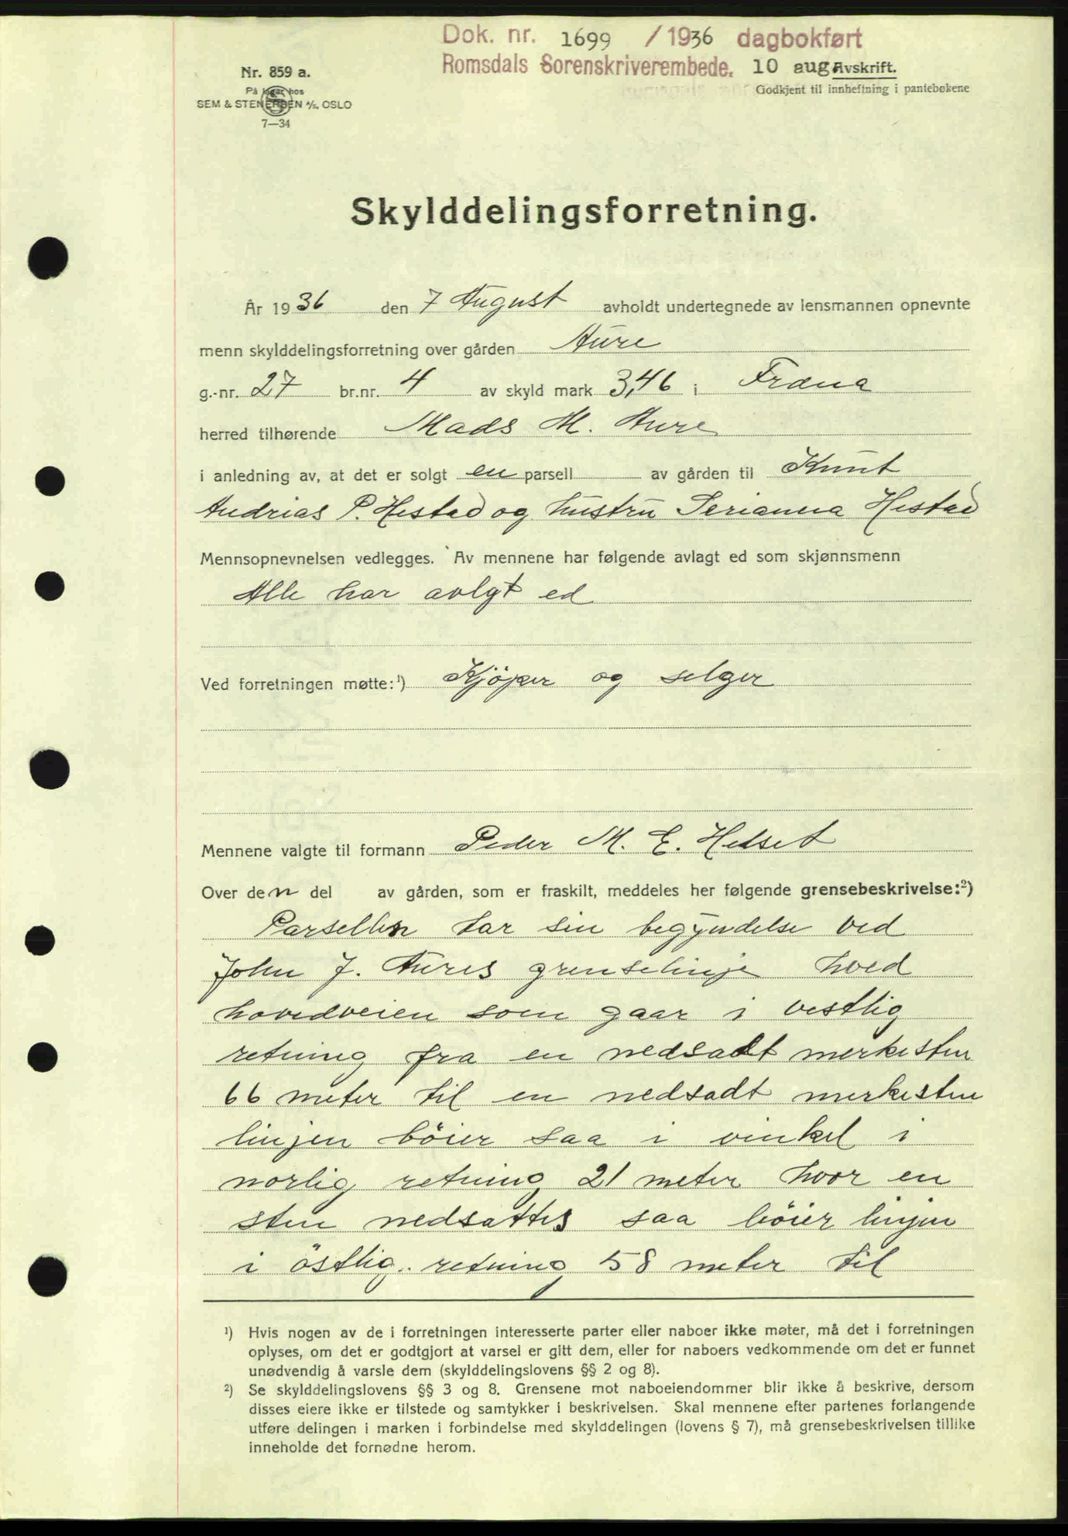 Dok. nr. 1699 / 1936 dagbokført
Romsdals Sorenskriverembede. 10 aug. Avskrift.
Godkjent til innheftning i pantebøkene
Nr. 859 a.
På lager hos
SEM & STENERSEN A/S, OSLO
7—34
Skylddelingsforretning.
År 1936 den 7 August avholdt undertegnede av lensmannen opnevnte
menn skylddelingsforretning over gården Aure
g.-nr. 27 br.nr. 4 av skyld mark 3,46 i Fræna
herred tilhørende Mads M. Aure
i anledning av, at det er solgt en parsell av gården til Knut
Andrias P. Hestad og hustru Serianna Hestad
Mennsopnevnelsen vedlegges. Av mennene har følgende avlagt ed som skjønnsmenn
Alle har avlgt ed
Ved forretningen møtte:¹) Kjöper og selger
Mennene valgte til formann Peder M. E. Helset
Over den del av gården, som er fraskilt, meddeles her følgende grensebeskrivelse:²)
Parsellen tar sin begyndelse ved
John J. Aures grenselinje hved
hovedveien som gaar i vestlig
retning fra en nedsadt merkesten
66 meter til en nedsadt merkesten
linjen böier saa i vinkel i
norlig retning 21 meter hvor en
sten nedsattes saa böier linjen
i östlig. retning 58 meter til
¹) Hvis nogen av de i forretningen interesserte parter eller naboer ikke møter, må det i forretningen
oplyses, om det er godtgjort at varsel er gitt dem, eller for naboers vedkommende om det er funnet
unødvendig å varsle dem (skylddelingslovens §§ 2 og 8).
²) Se skylddelingslovens §§ 3 og 8. Grensene mot naboeiendommer blir ikke å beskrive, dersom
disses eiere ikke er tilstede og samtykker i beskrivelsen. Skal mennene efter partenes forlangende
utføre delingen i marken i forbindelse med skylddelingen (lovens § 7), må grensebeskrivelsen tillike
inneholde det fornødne herom.